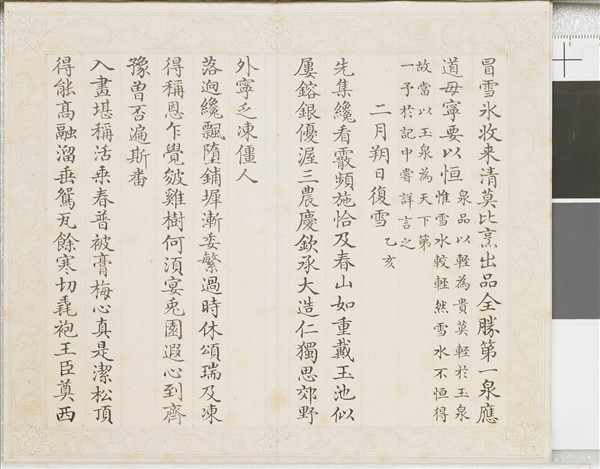 冒雪氷收来清莫比烹出品全勝第一泉應
道毋寧要以恒
泉品以輕為貴莫輕於玉泉
惟雪水較輕然雪水不恒得
故當以玉泉為天下第
一予於記中嘗詳言之
二月朔日復雪 乙亥
先集纔看霰頻施恰及春山如重戴玉池似
屢鎔銀優渥三農慶欽承大造仁獨思郊野
外寧乏凍僵人
落迥纔飄墮鋪墀漸委繁過時休頌瑞及凍
得稱恩乍覺皴雞樹何湏宴兎園遐心到齊
豫曽否遍斯番
入畫堪稱活乗春普被膏梅心真是潔松頂
得能髙融溜垂鴛瓦餘寒切毳袍王臣奠西